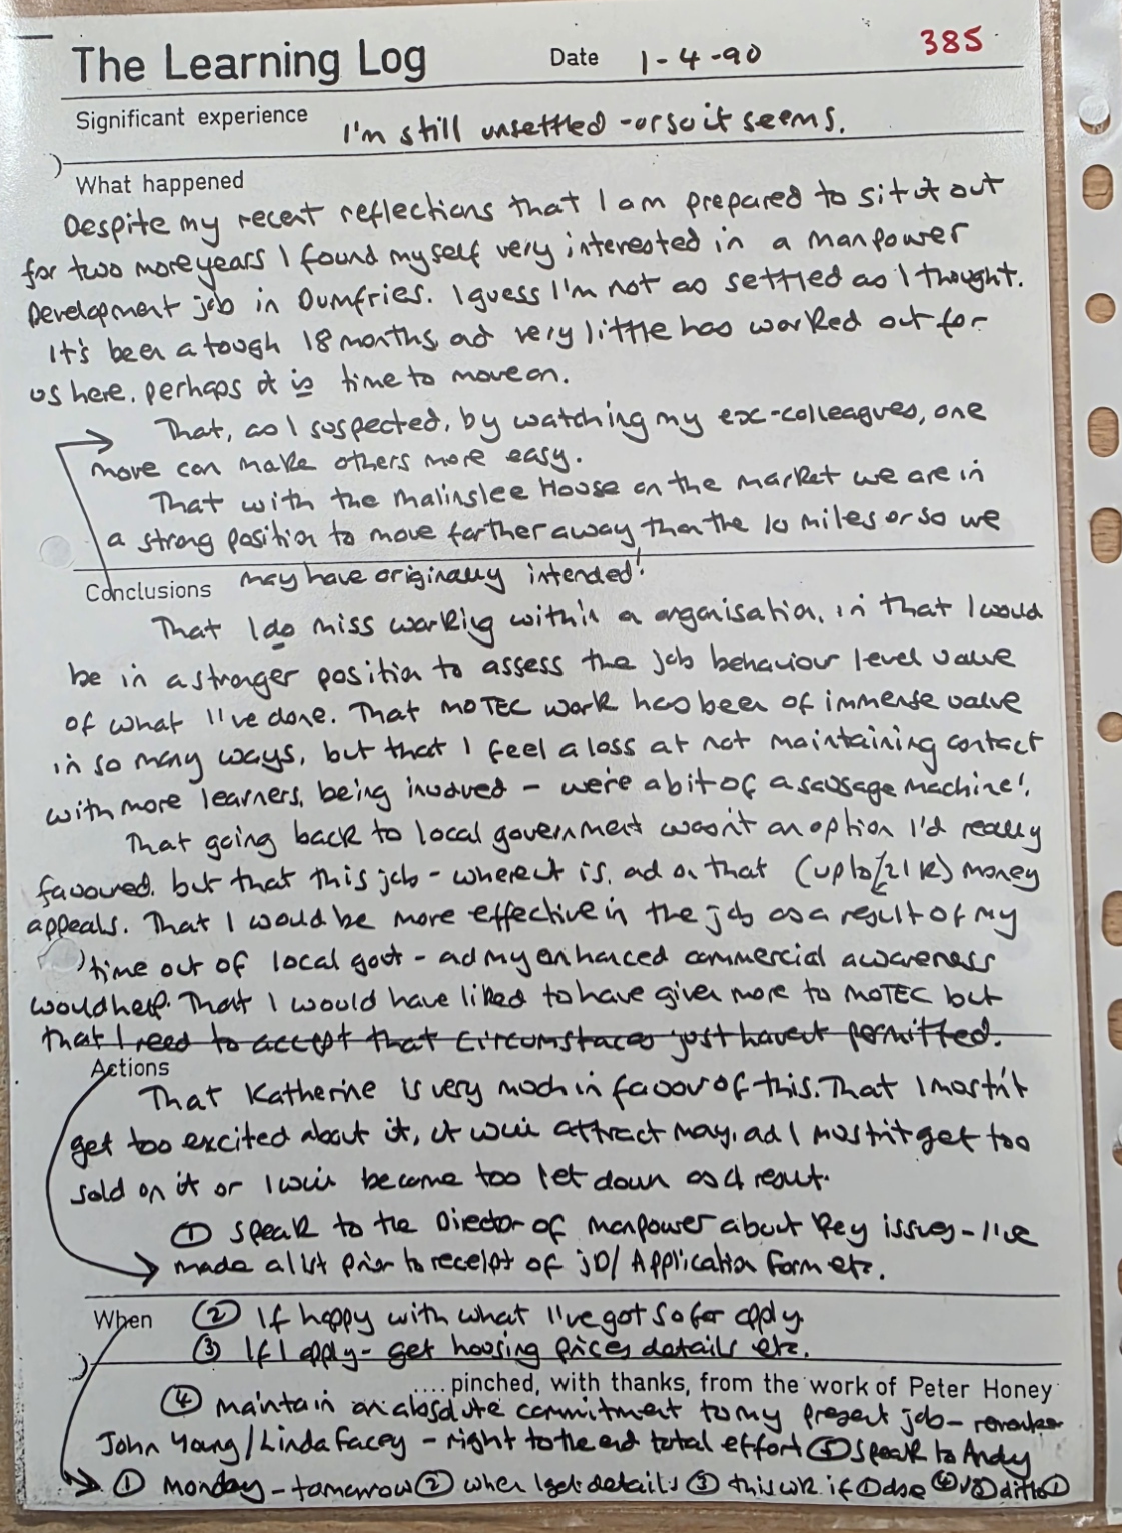 The Learning Log Date 1-4-90 385
Significant experience I'm still unsettled - or so it seems.
What happened
Despite my recent reflections that I am prepared to sit it out
for two more years I found myself very interested in a Manpower
Development job in Dumfries. I guess I'm not as settled as I thought.
It's been a tough 18 months, ad very little has worked out for
us here. perhaps it is time to move on.
That, as I suspected, by watching my exc-colleagues, one
move can make others more easy.
That with the Malinslee House on the market we are in
a strong position to move farther away than the 10 miles or so we
may have originally intended!
Conclusions
That I do miss working within a organisation, in that I would
be in a stronger position to assess the job behaviour level value
of what I've done. That MOTEC work has been of immense value
in so many ways, but that I feel a loss at not maintaining contact
with more learners, being involved - we're a bit of a sausage machine!
That going back to local government wasn't an option I'd really
favoured. but that this job - where it is, ad on that (up to £21K) money
appeals. That I would be more effective in the job as a result of my
time out of local govt - ad my enhanced commercial awareness
would help. That I would have liked to have given more to MOTEC but
that I need to accept that circumstances just haven't permitted.
Actions
That Katherine is very much in favour of this. That I mustn't
get too excited about it, it will attract many, ad I mustn't get too
sold on it or I will become too let down as a result.
① Speak to the Director of Manpower about key issues - I've
made a list prior to receipt of JD/ Application Form etc.
When ② If happy with what I've got so far apply.
③ If I apply - get housing prices details etc.
.... pinched, with thanks, from the work of Peter Honey
④ Maintain an absolute commitment to my present job - remember
John Young / Linda Facey - right to the end total effort ⑤ Speak to Andy
① Monday - tomorrow ② when I get details ③ this wk if ① done ④ ⑤ ditto ①